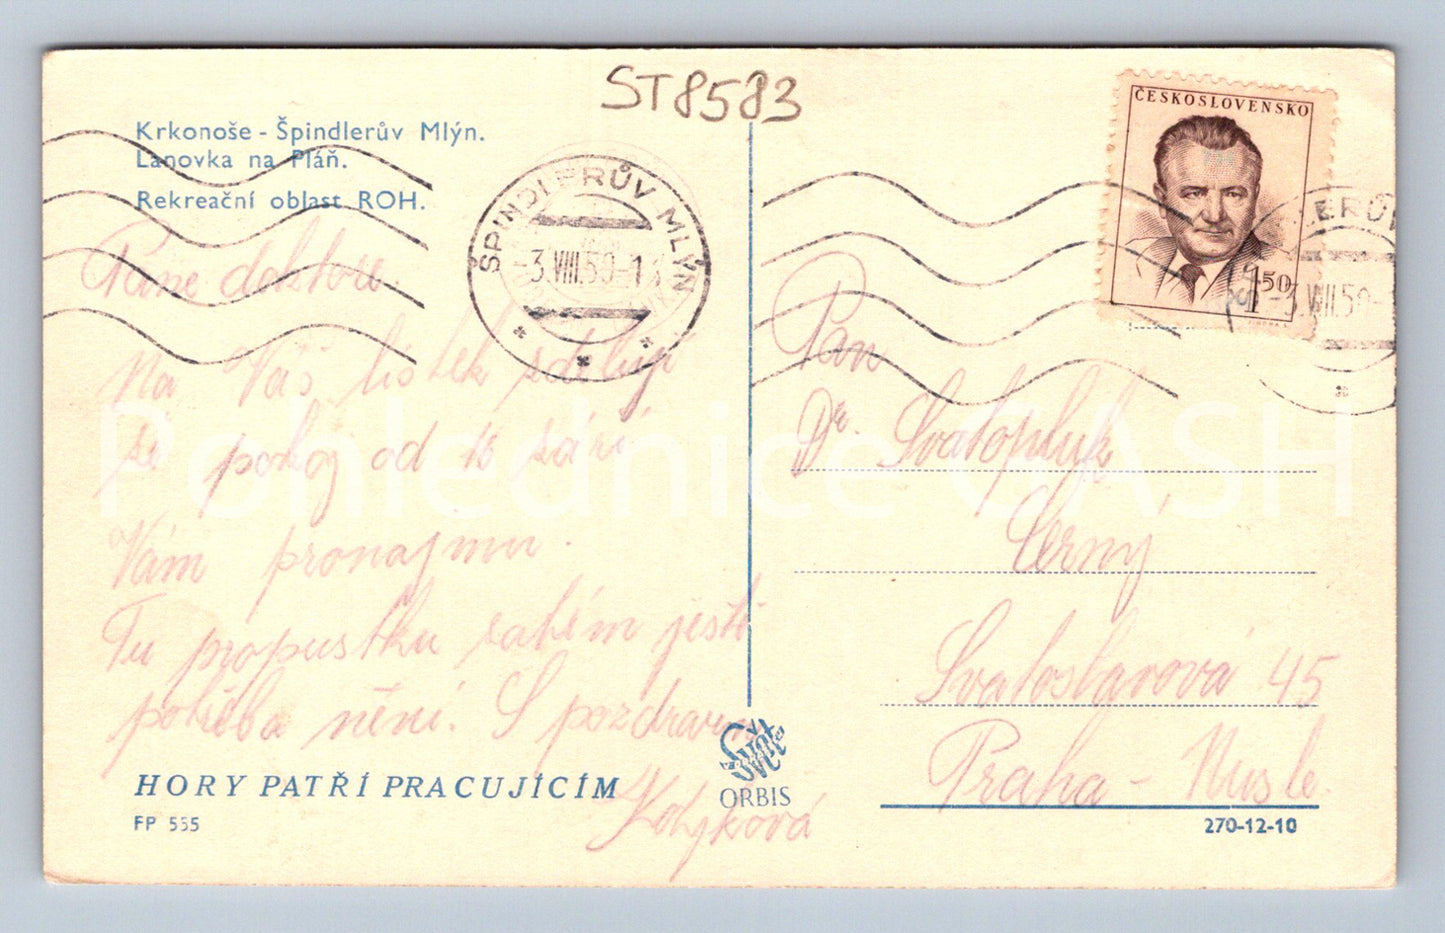 ST8583
Krkonoše - Špindlerův Mlýn.
Lanovka na Pláň.
Rekreační oblast ROH.
ŠPINDLERŮV MLÝN
-3.VIII.50-1
ČESKOSLOVENSKO
1 50
ERŮV
-3.VIII.50-
Pane doktore.
Na Váš lístek sděluji
še pokoj od 15 září
Vám pronajmu.
Tu propustku zatím ještě
potřeba není. S pozdravem
Pan
Dr. Svatopluk
Černý
Svatoslavova 45
Praha - Nusle.
Pohlednice CASH
HORY PATŘÍ PRACUJÍCÍM
FP 555
Svět
ORBIS
270-12-10